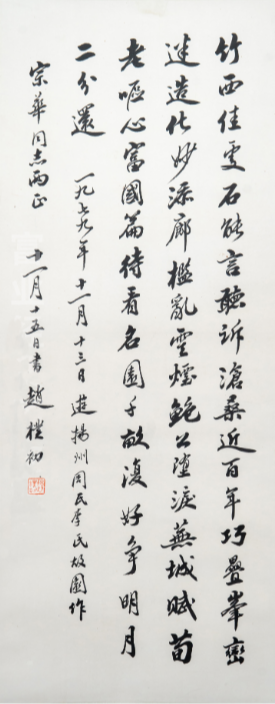 竹西佳處石能言聽訴滄桑近百年巧疊峯巒
迷造化妙添廊檻亂雲煙鮑公墮淚蕪城賦荀
老嘔心富國篇待看名園千畝復好爭明月
二分還 一九七九年十一月十三日遊揚州周氏李氏故園作
宗華同志兩正 十一月十五日書 趙樸初